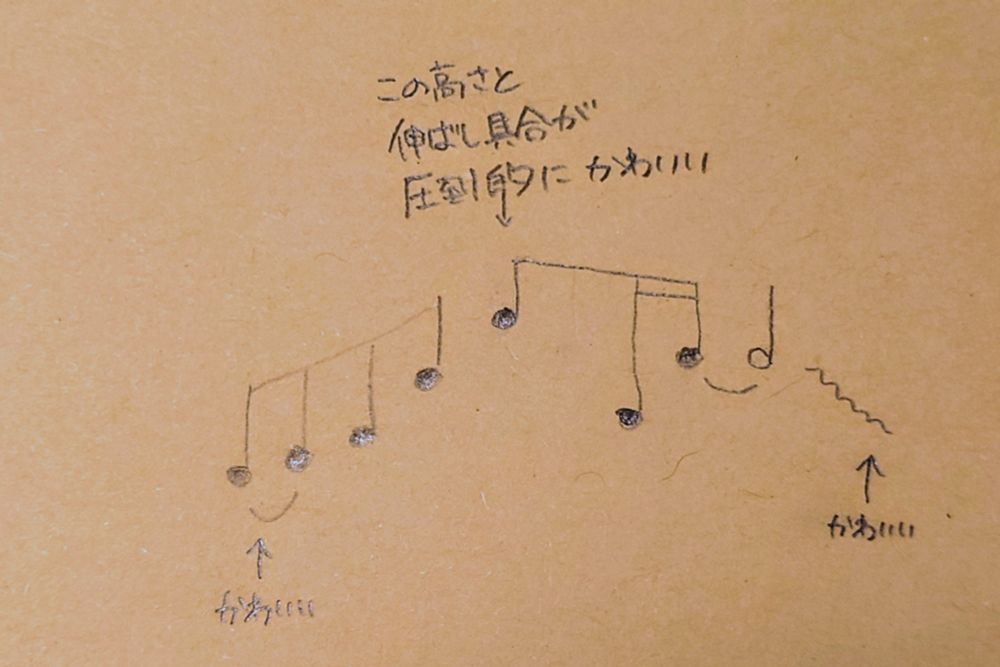 この高さと
伸ばし具合が
圧到的に かわいい
かわいい
かわいい